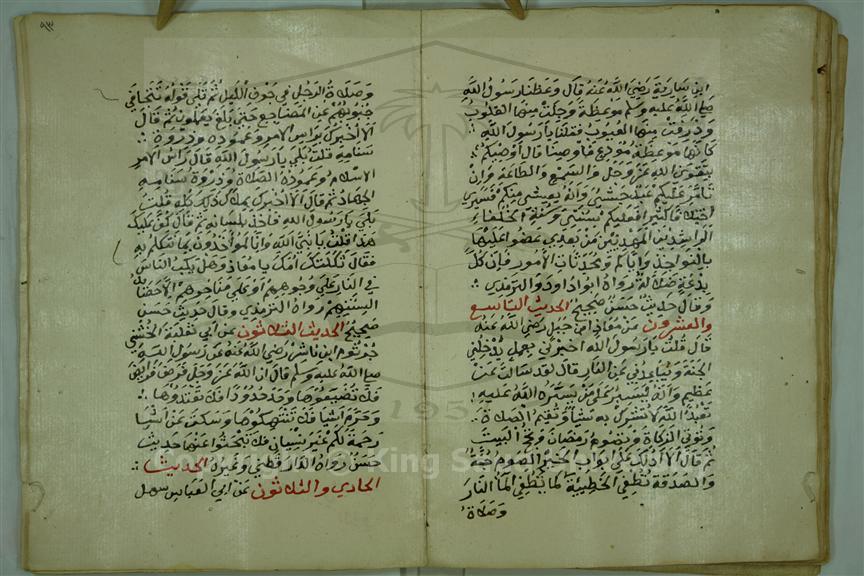 ابن سارية رضي الله عنه قال وعظنا رسول الله
صلي الله عليه وسلم موعظة وجلت منها القلوب
وذرفت منها العيون فقلنا يا رسول الله
كانها موعظة مودع فاوصينا قال اوصيكم
بتقوي الله عز وجل والسمع والطاعة وان
تامر عليكم عبد حبشي وانه يعيش منكم فسيري
اختلافا كثيرا فعليكم بسنتي وسنة الخلفاء
الراشدين المهديين من بعدي عضوا عليها
بالنواجذ واياكم ومحدثات الامور فان كل
بدعة ضلالة رواه ابو داود والترمذي
وقال حديث حسن صحيح الحديث التاسع
والعشرون عن معاذ ابن جبل رضي الله عنه
قال قلت يا رسول الله اخبرني بعمل يدخلني
الجنة ويباعدني عن النار قال لقد سالت عن
عظيم وانه ليسير علي من يسره الله عليه
تعبد الله لا تشرك به شيأ وتقيم الصلاة
وتوتي الزكاة وتصوم رمضان وتحج البيت
ثم قال الا ادلك علي ابواب الخير الصوم جنة
والصدقة تطفي الخطيئة كما يطفي الما النار
وصلاة
٩٣
وصلاة الرجل في جوف الليل ثم تلي قوله تتجافي
جنوبهم عن المضاجع حتي بلغ يعملون ثم قال
الا اخبرك براس الامر وعموده وذروة
سنامه قلت بلي يا رسول الله قال راس الامر
الاسلام وعموده الصلاة وذروة سنامه
الجهاد ثم قال الا اخبرك بملاك ذلك كله قلت
بلي يا رسول الله فاخذ بلسانه ثم قال كف عليك
هذا قلت يا نبي الله وانا لمواخذون بما نتكلم به
فقال ثكلتك امك يا معاذ وهل يكب الناس
في النار علي وجوههم او علي مناخرهم الا حصائد
السنتهم رواه الترمذي وقال حديث حسن
صحيح الحديث الثلاثون عن ابي ثعلبة الخشني
جرثوم ابن ناشر رضي الله عنه عن رسول الله
صلي الله عليه وسلم قال ان الله عز وجل فرض فرايض
فلا تضيعوها وحد حدودا فلا تعتدوها
وحرم اشيا فلا تنتهكوها وسكت عن اشيا
رحمة لكم غير نسيان فلا تبحثوا عنها حديث
حسن رواه الدارقطني وغيره الحديث
الحادي والثلاثون عن ابي العباس سهل